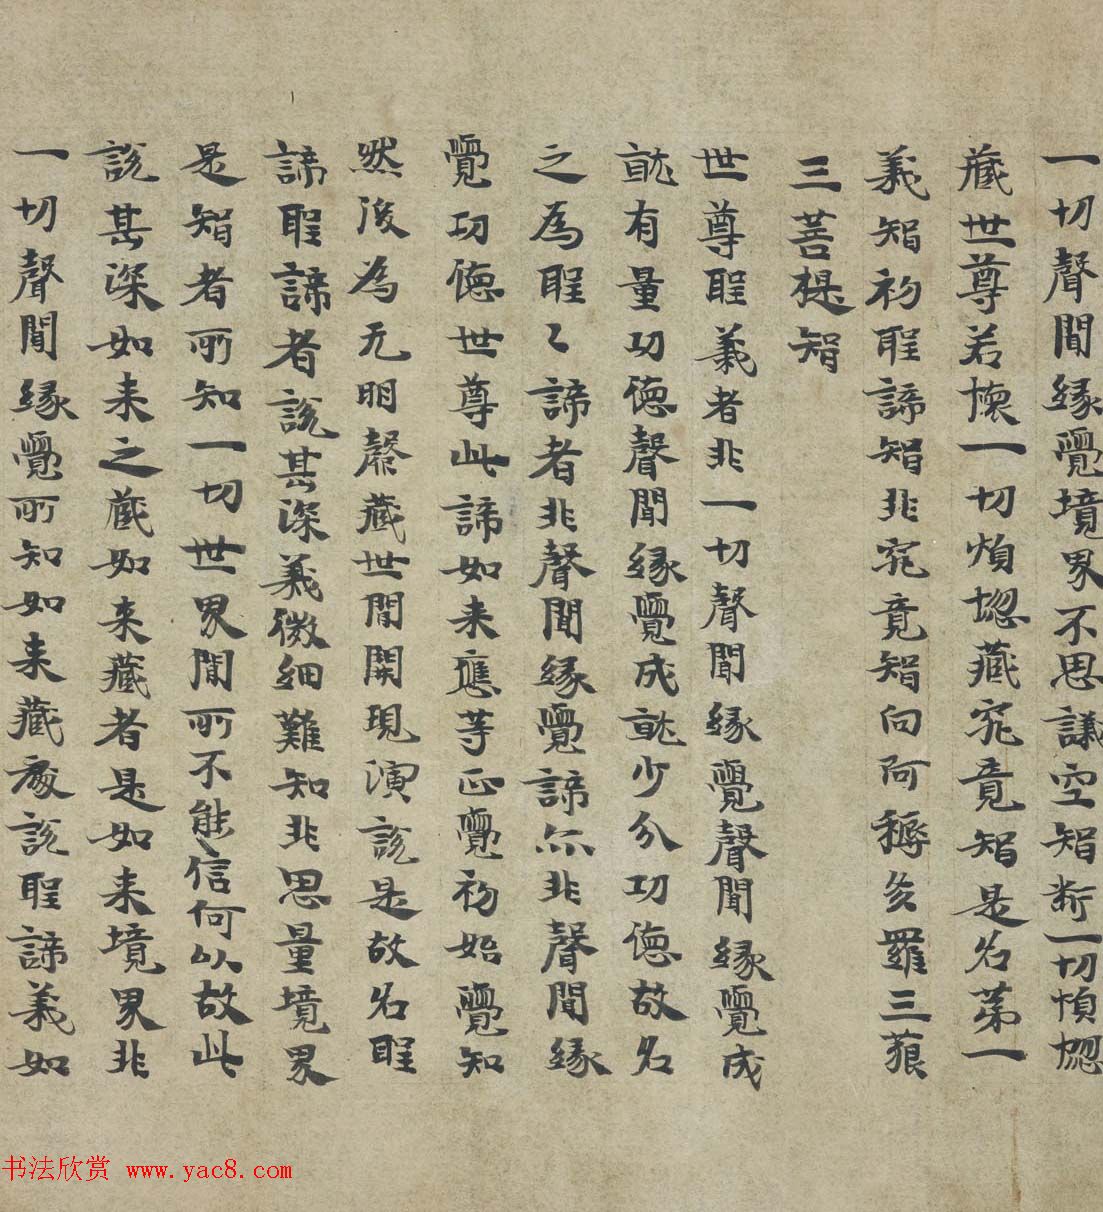 一切聲聞緣覺境界不思議空智斷一切煩惱
藏世尊若懷一切煩惱藏究竟智是名第一
義智初聖諦智非究竟智向阿耨多羅三藐
三菩提智
世尊聖義者非一切聲聞緣覺聲聞緣覺成
就有量功德聲聞緣覺成就少分功德故名
之為聖〻諦者非聲聞緣覺諦尒非聲聞緣
覺功德世尊此諦如来應等正覺初始覺知
然後為无明藏世間開現演說是故名聖
諦聖諦者說甚深義微細難知非思量境界
是智者所知一切世界間所不能信何以故此
說甚深如来之藏如来藏者是如来境界非
一切聲聞緣覺所知如来藏處說聖諦義如
书法欣赏 www.yac8.com